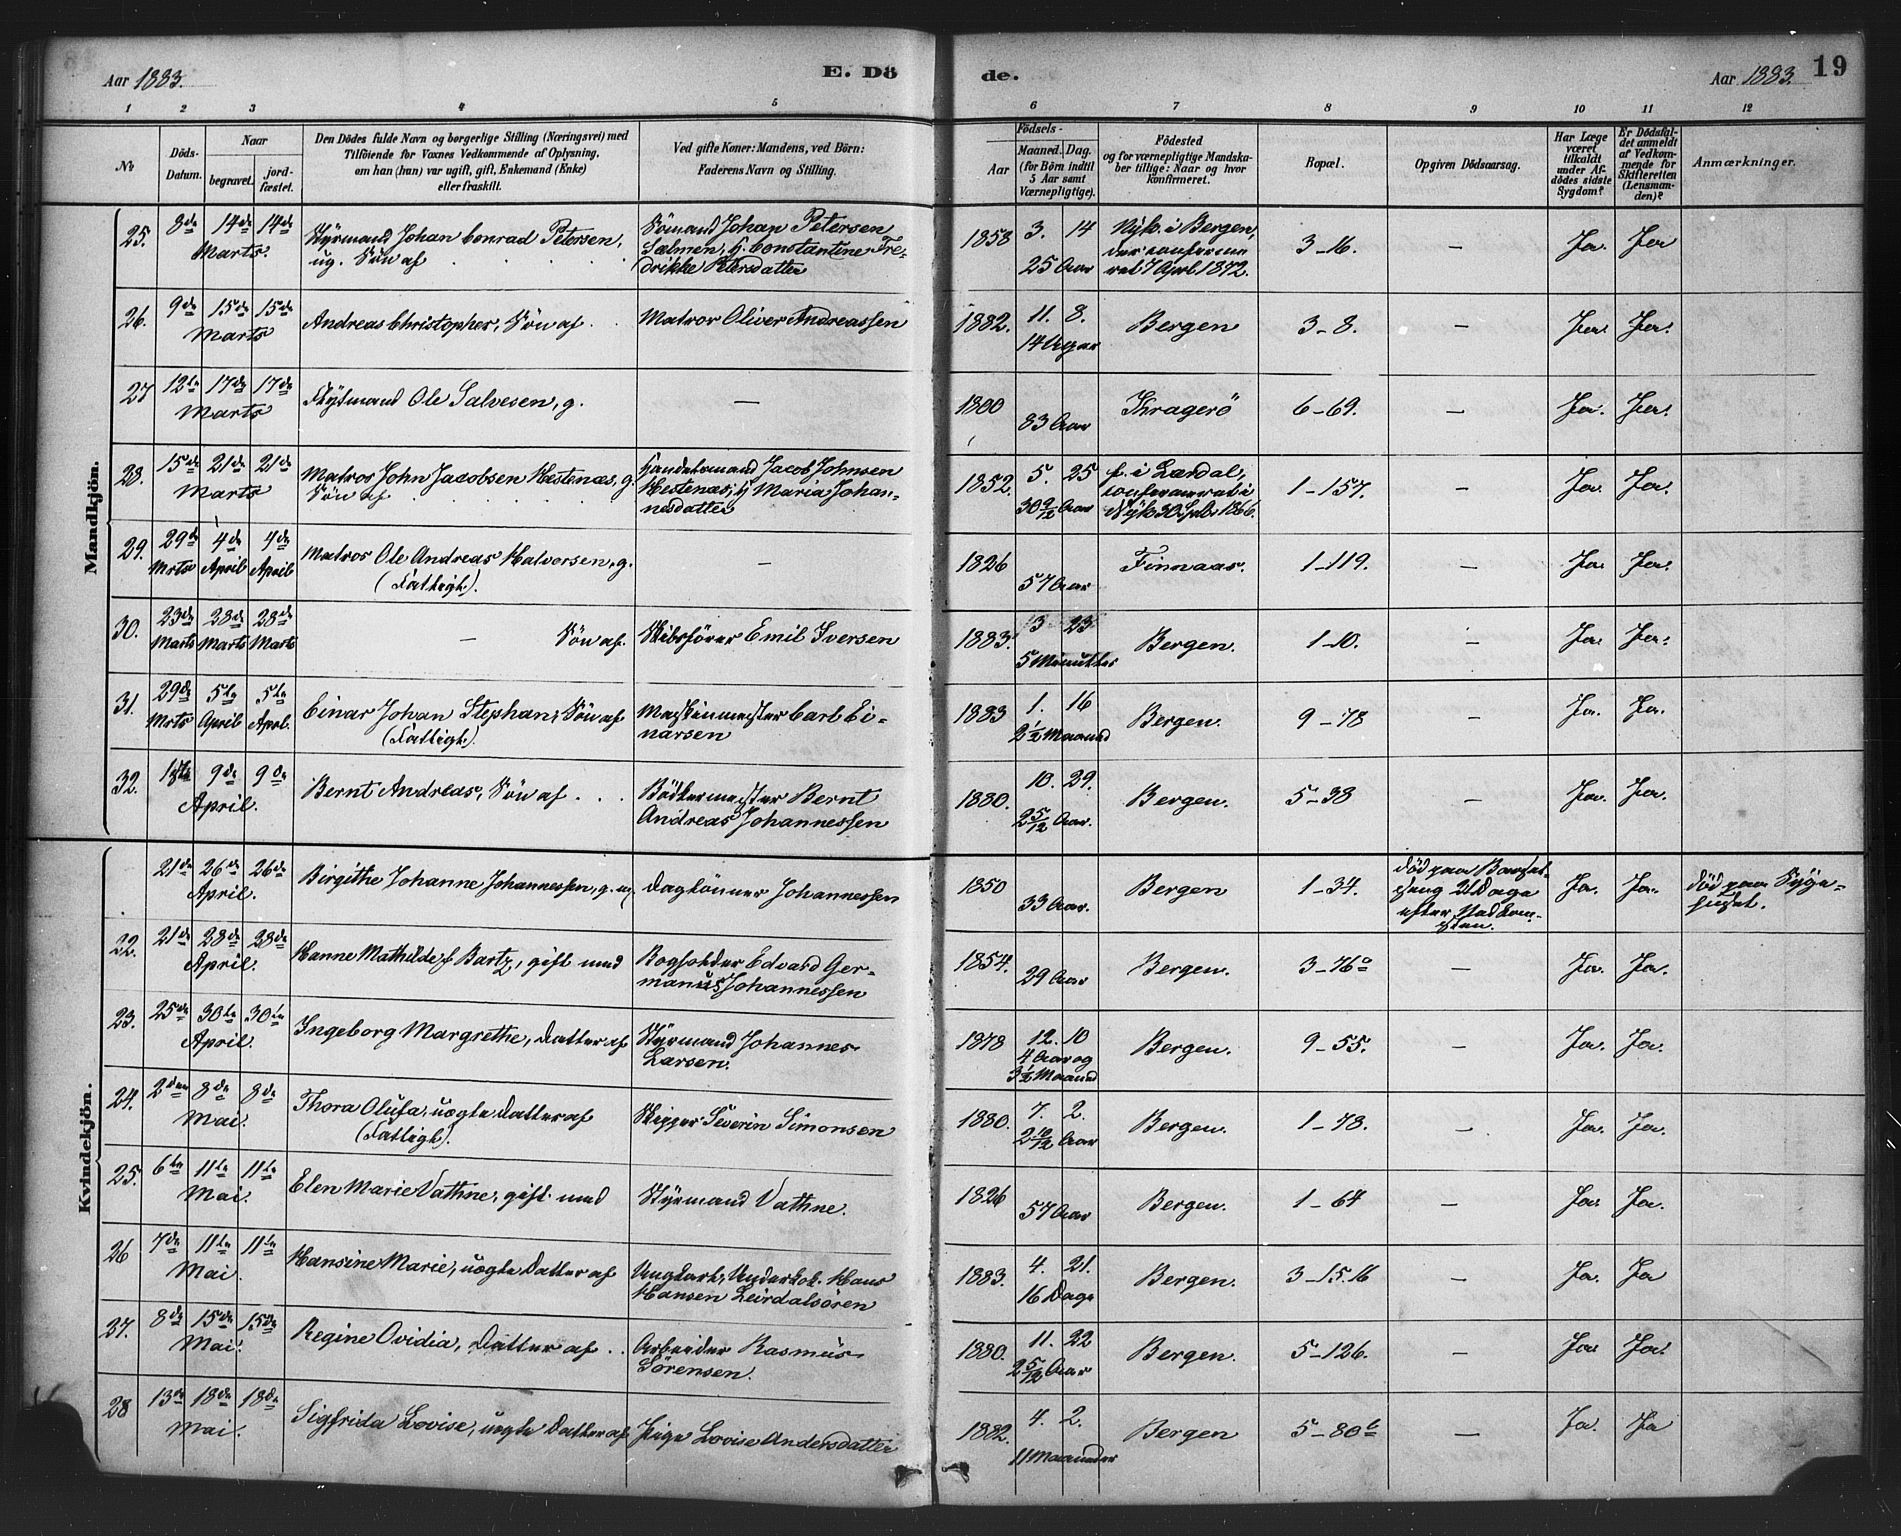 Aar 1883.
E. Dö
de.
Aar 1883.
19
1 2 3 4 5 6 7 8 9 10 11 12
No
Döds-
Datum.
Naar
begravet.
jord-
fæstet.
Den Dödes fulde Navn og borgerlige Stilling (Næringsvei) med
Tilföiende for Voxnes Vedkommende af Oplysning,
om han (hun) var ugift, gift, Enkemand (Enke)
eller fraskilt.
Ved gifte Koner: Mandens, ved Börn:
Faderens Navn og Stilling.
Födsels-
Aar
Maaned. Dag.
(for Börn indtil
5 Aar samt
Værnepligtige).
Födested
og for værnepligtige Mandska-
ber tillige: Naar og hvor
konfirmeret.
Bopæl.
Opgiven Dödsaarsag.
Har Læge
været
tilkaldt
under Af-
dödes sidste
Sygdom?
Er Dödsfal-
det anmeldt
af Vedkom-
mende for
Skifteretten
(Lensman-
den)?
Anmærkninger.
Mandkjön.
25. 8de 14de 14de Marts. Styrmand Johan Conrad Petersen, ug. Sön af Sömand Johan Petersen
Sælmen, H. Constantine Fre-
drikke Petersdatter 1858 3. 14 25 Aar Nyk. i Bergen,
der confirme
ret 7 Apl. 1872. 3-16. — Ja. Ja
26. 9de 15de 15de Marts Andreas Christopher, Sön af Matros Oliver Andreassen 1882. 11. 8. Bergen 3-8. — Ja. Ja.
27 12te 17de 17de Marts Ole Salvesen, g. — 1800 83 Aar Kragerö 6-69. — Ja. Ja.
28. 15de 21de 21de Marts Matros John Jacobsen Hestenæs, g.
Sön af Jacob Johnsen
Hestenæs, H Maria Johan-
nesdatter 1852. 5. 25 30 9/12 Aar f. i Lærdal,
confirmeret i
Nyk 30 Sptr 1866. 1-157. — Ja. Ja.
29. 29de Mrts 4de April 4de April Matros Ole Andreas Halvorsen, g.
(Fattigh). — 1826 57 Aar Finnaas. 1-119. — Ja. Ja.
30. 23de Marts 28de Marts 28de Marts — Sön af. Skibsförer Emil Iversen 1883. 3 23 5 Minutter Bergen. 1-10. — Ja. Ja.
31. 29de Mrts 5te April 5te April. Einar Johan Stephan, Sön af
(Fattigh). Maskinmester Carl Ei-
narsen 1883 1. 16 2 1/2 Maaned Bergen. 9-78 — Ja. Ja.
32. 9de 9de April. Bernt Andreas, Sön af Bödkermester Bernt
Andreas Johannessen 1880. 10. 29. 2 5/12 Aar. Bergen. 5-38 — Ja. Ja.
Kvindekjön.
21de 26de 26de April. Birgithe Johanne Johannessen, g. Daglönner Johannessen 1850 33 Aar. Bergen 1-34. Död paa Barsel-
seng 21 Dage
efter Nedkom-
sten. Ja. Ja. Död paa Syge-
huset.
22. 21de 28de 28de April. Hanne Mathilde f Bartz, gift med Bogholder Edvard Ger-
manus Johannessen 1854. 29 Aar Bergen. 3-76a — Ja. Ja.
23. 25de 30te 30te April. Ingeborg Margrethe, Datter af Styrmand Johannes
Larsen. 1878 12. 10 4 Aar og
3 1/2 Maaned Bergen. 9-55. — Ja. Ja.
24. 2den 8de 8de Mai. Thora Olufa, uægte Datter af
(Fattigh). Skipper Severin Simonsen 1880. 7. 2. 2 10/12 Aar Bergen. 1-78. — Ja. Ja.
25. 6te 11te 11te Mai. Elen Marie Vathne, gift med Styrmand Vathne. 1826 57 Aar Bergen. 1-64 — Ja. Ja.
26 7de 11te 11te Mai. Hansine Marie, uægte Datter af Ungkarl, Underkok. Hans
Hansen Leirdalsören 1883. 4. 21. 16 Dage Bergen. 3-15.16 — Ja. Ja
27. 8de 15de 15de Mai. Regine Ovidia, Datter af Arbeider Rasmus
Sörensen. 1880. 11. 22 2 5/12 Aar Bergen. 5-126. — Ja. Ja.
28 13de 18de 18de Mai. Sigfrida Lovise, uægte Datter af Pige Lovise Andersdatter 1882. 4. 2. 11 Maaneder Bergen 5-80b — Ja. Ja